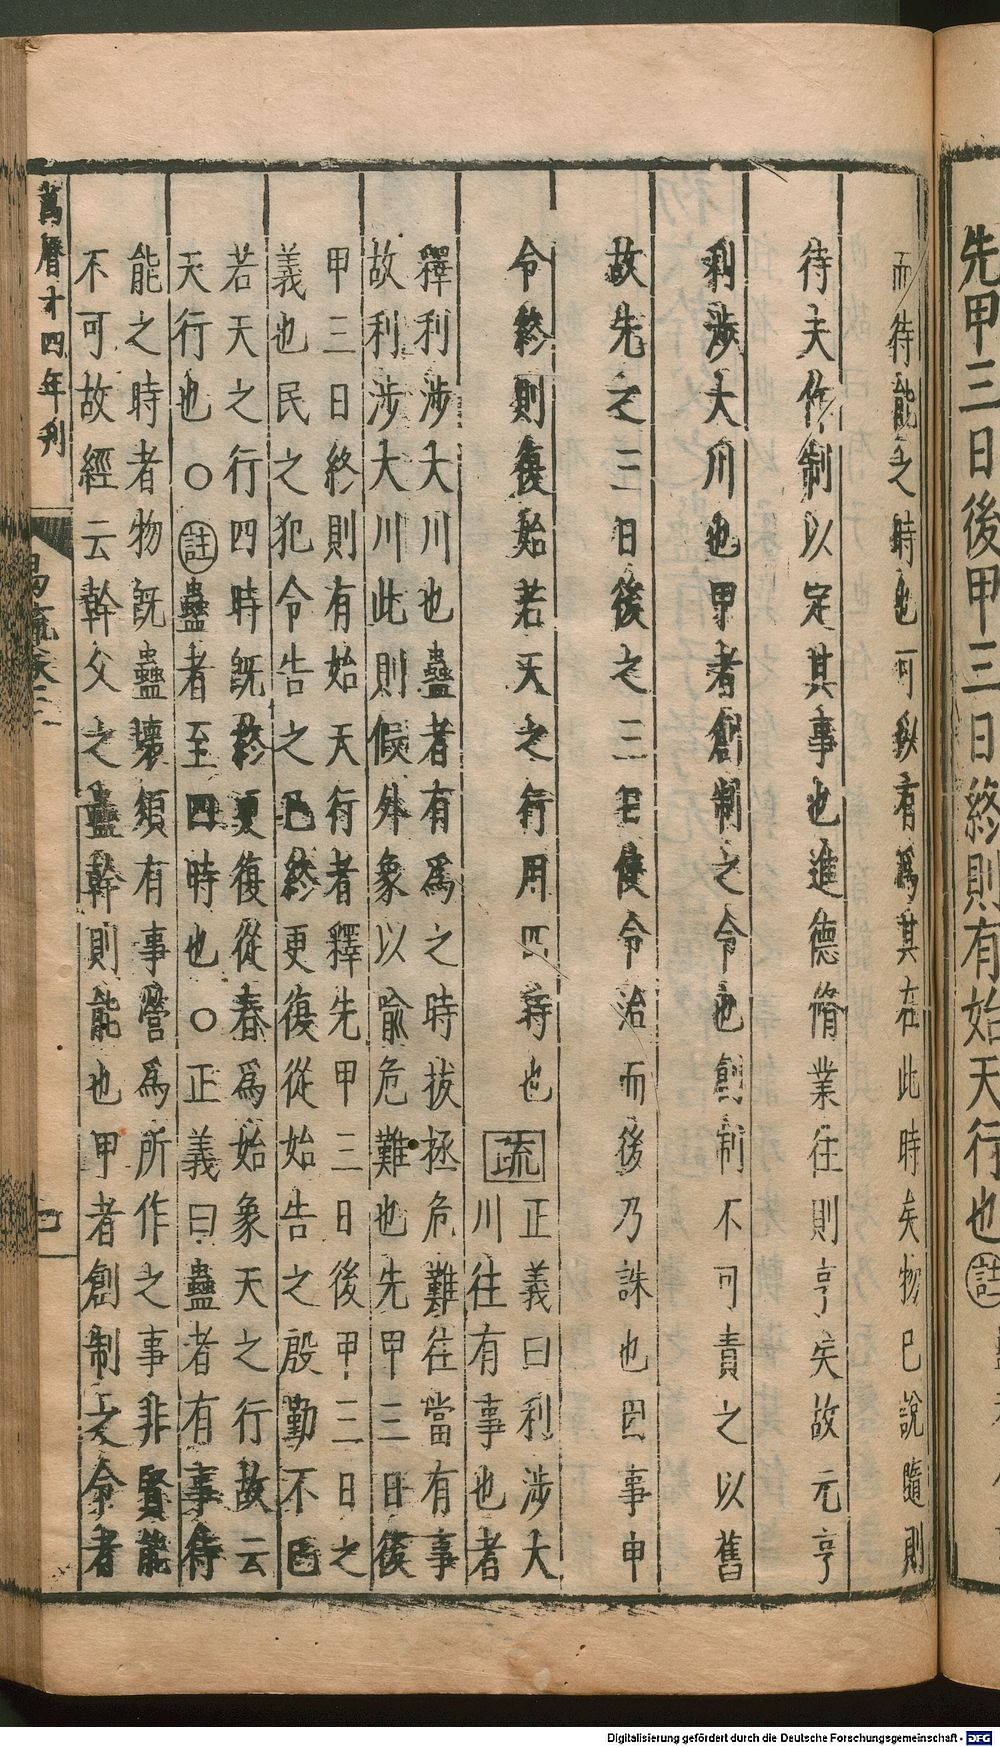 先甲三日後甲三日終則有始天行也註
而待能之時也可以有爲其在此時矣物已說隨則
待夫作制以定其事也進德脩業往則亨矣故元亨
利涉大川也甲者創制之令也創制不可責之以舊
故先之三日後之三日使令洽而後乃誅也因事申
令終則復始若天之行用四時也 疏 正義曰利涉大
川往有事也者
釋利涉大川也蠱者有爲之時拔拯危難往當有事
故利涉大川此則假外象以喻危難也先甲三日後
甲三日終則有始天行者釋先甲三日後甲三日之
義也民之犯令告之已終更復從始告之殷勤不已
若天之行四時旣終更復從春爲始象天之行故云
天行也○註蠱者至四時也○正義曰蠱者有事待
能之時者物旣蠱壞須有事營爲所作之事非賢能
不可故經云幹父之蠱幹則能也甲者創制之令者
萬曆十四年刊
易疏卷三
Digitalisierung gefördert durch die Deutsche Forschungsgemeinschaft - DFG